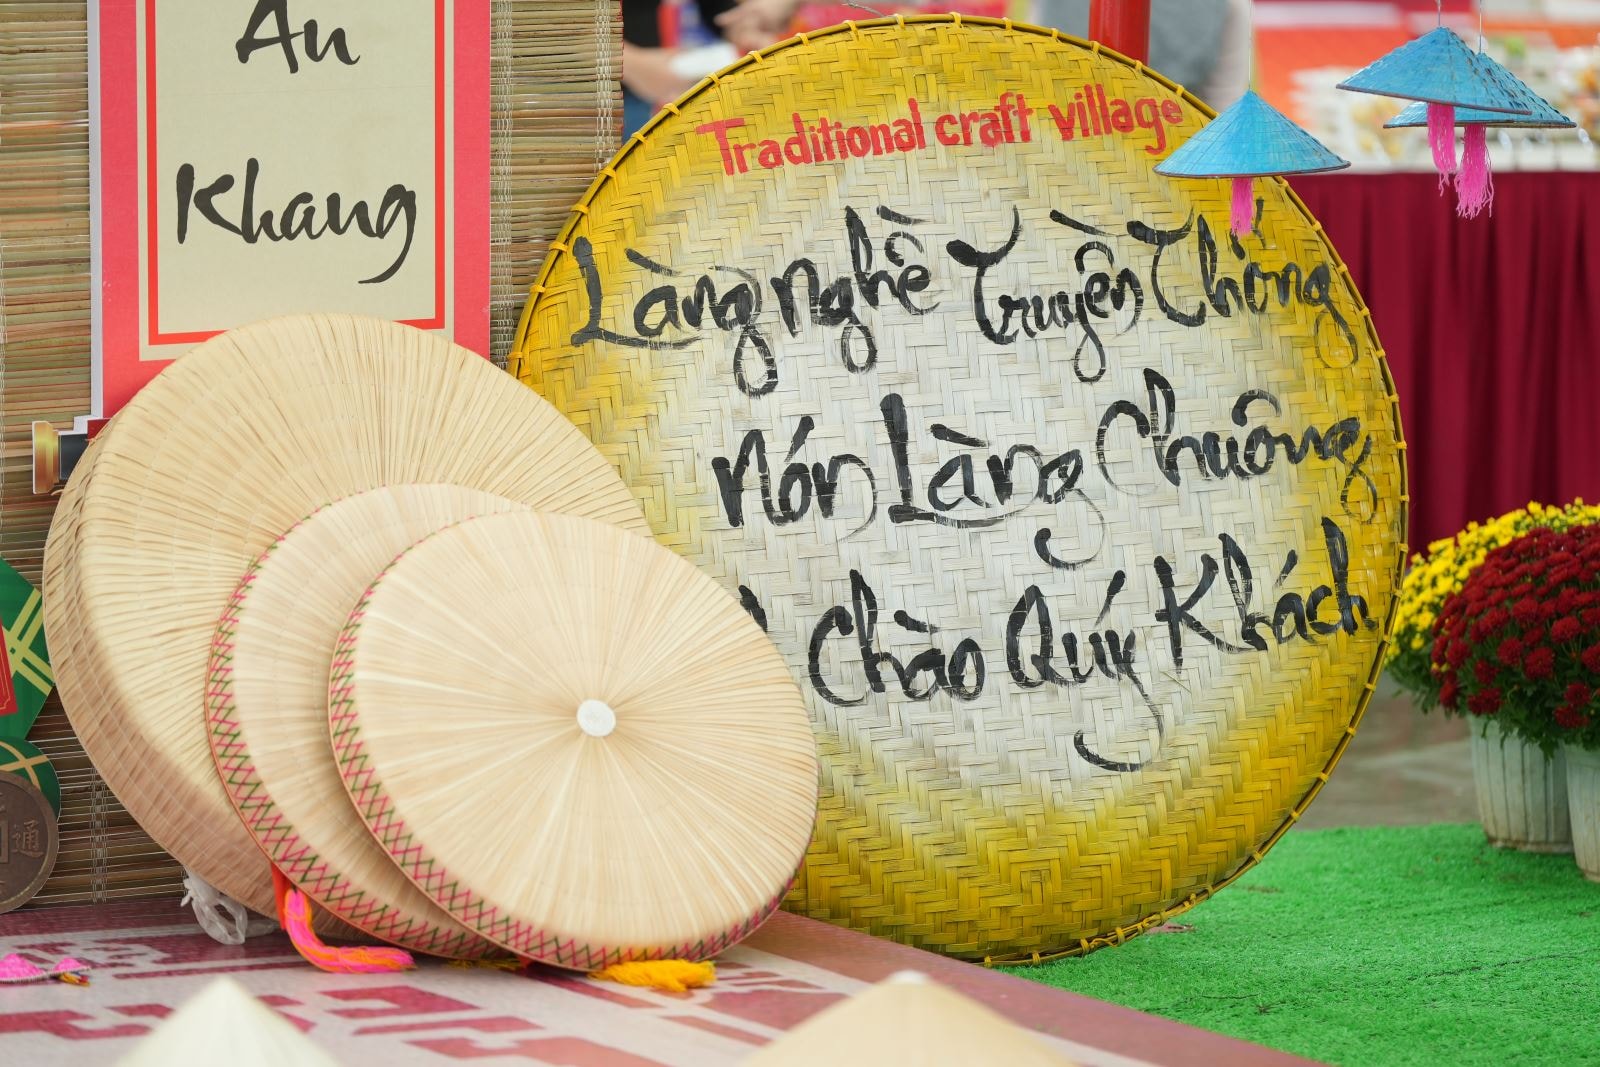 An
Khang
Traditional craft village
Làng nghề Truyền Thống
Nón Làng Chuông
Chào Quý Khách
通